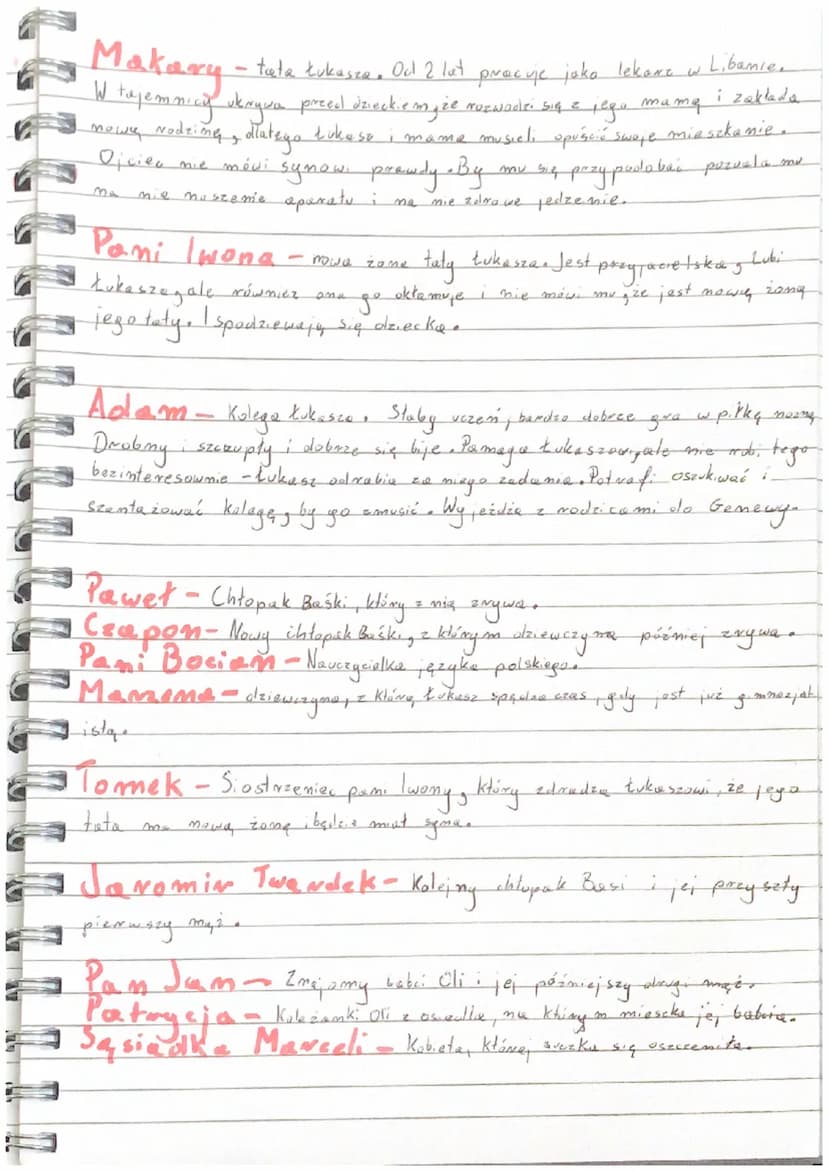 Makary - tata Łukasza. Od 2 lat pracuje jako lekarz w Libanie.
W tajemnicy ukrywa przed dzieckiem, że rozwodzi się z jego mamą i zakłada
nową rodzinę, dlatego Łukasz i mama musieli opuścić swoje mieszkanie.
Ojciec nie mówi synowi prawdy. By mu się przypodobać pozwala mu
na nie noszenie aparatu i na nie zdrowe jedzenie.
Pani Iwona - nowa żona taty Łukasza. Jest przyjacielska, Lubi
Łukasza, ale również ona go okłamuje i nie mówi mu, że jest nową żoną
jego taty. I spodziewają się dziecka.
Adam - Kolega Łukasza. Słaby uczeń, bardzo dobrze gra w piłkę nożną
Drobny i szczupły i dobrze się bije. Pomaga Łukaszowi, ale nie robi tego
bezinteresownie - Łukasz odrabia za niego zadania. Potrafi oszukiwać i
szantażować kolegę, by go zmusić. Wyjeżdża z rodzicami do Genewy.
Paweł - Chłopak Baśki, który z nią zrywa.
Czapon - Nowy chłopak Baśki, z którym dziewczyna później zrywa.
Pani Bocian - Nauczycielka języka polskiego.
Marzena - dziewczyna, z którą Łukasz spędza czas, gdy jest już gimnazjal
istą.
Tomek - Siostrzeniec pani Iwony, który zdradza Łukaszowi, że jego
tata ma nową żonę i będzie miał syna.
Jaromir Twardek - Kolejny chłopak Basi i jej przyszły
pierwszy mąż.
Pan Jan - Znajomy babci Oli i jej późniejszy drugi mąż.
Patrycja - Koleżanki Oli z osiedla, na którym mieszka jej babcia.
Sąsiadka Marceli - Kobieta, której suczka się oszczeniła.